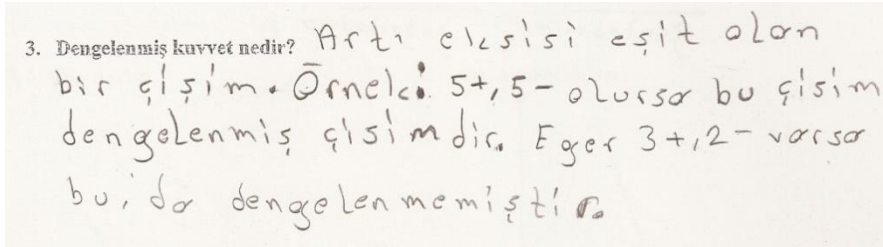 3. Dengelenmiş kuvvet nedir? Artı eksisi eşit olan
bir çişim. Örneki 5+, 5- olursa bu çisim
dengelenmiş çisimdir. Eger 3+,2- varsa
bu, da dengelenmemiştir.